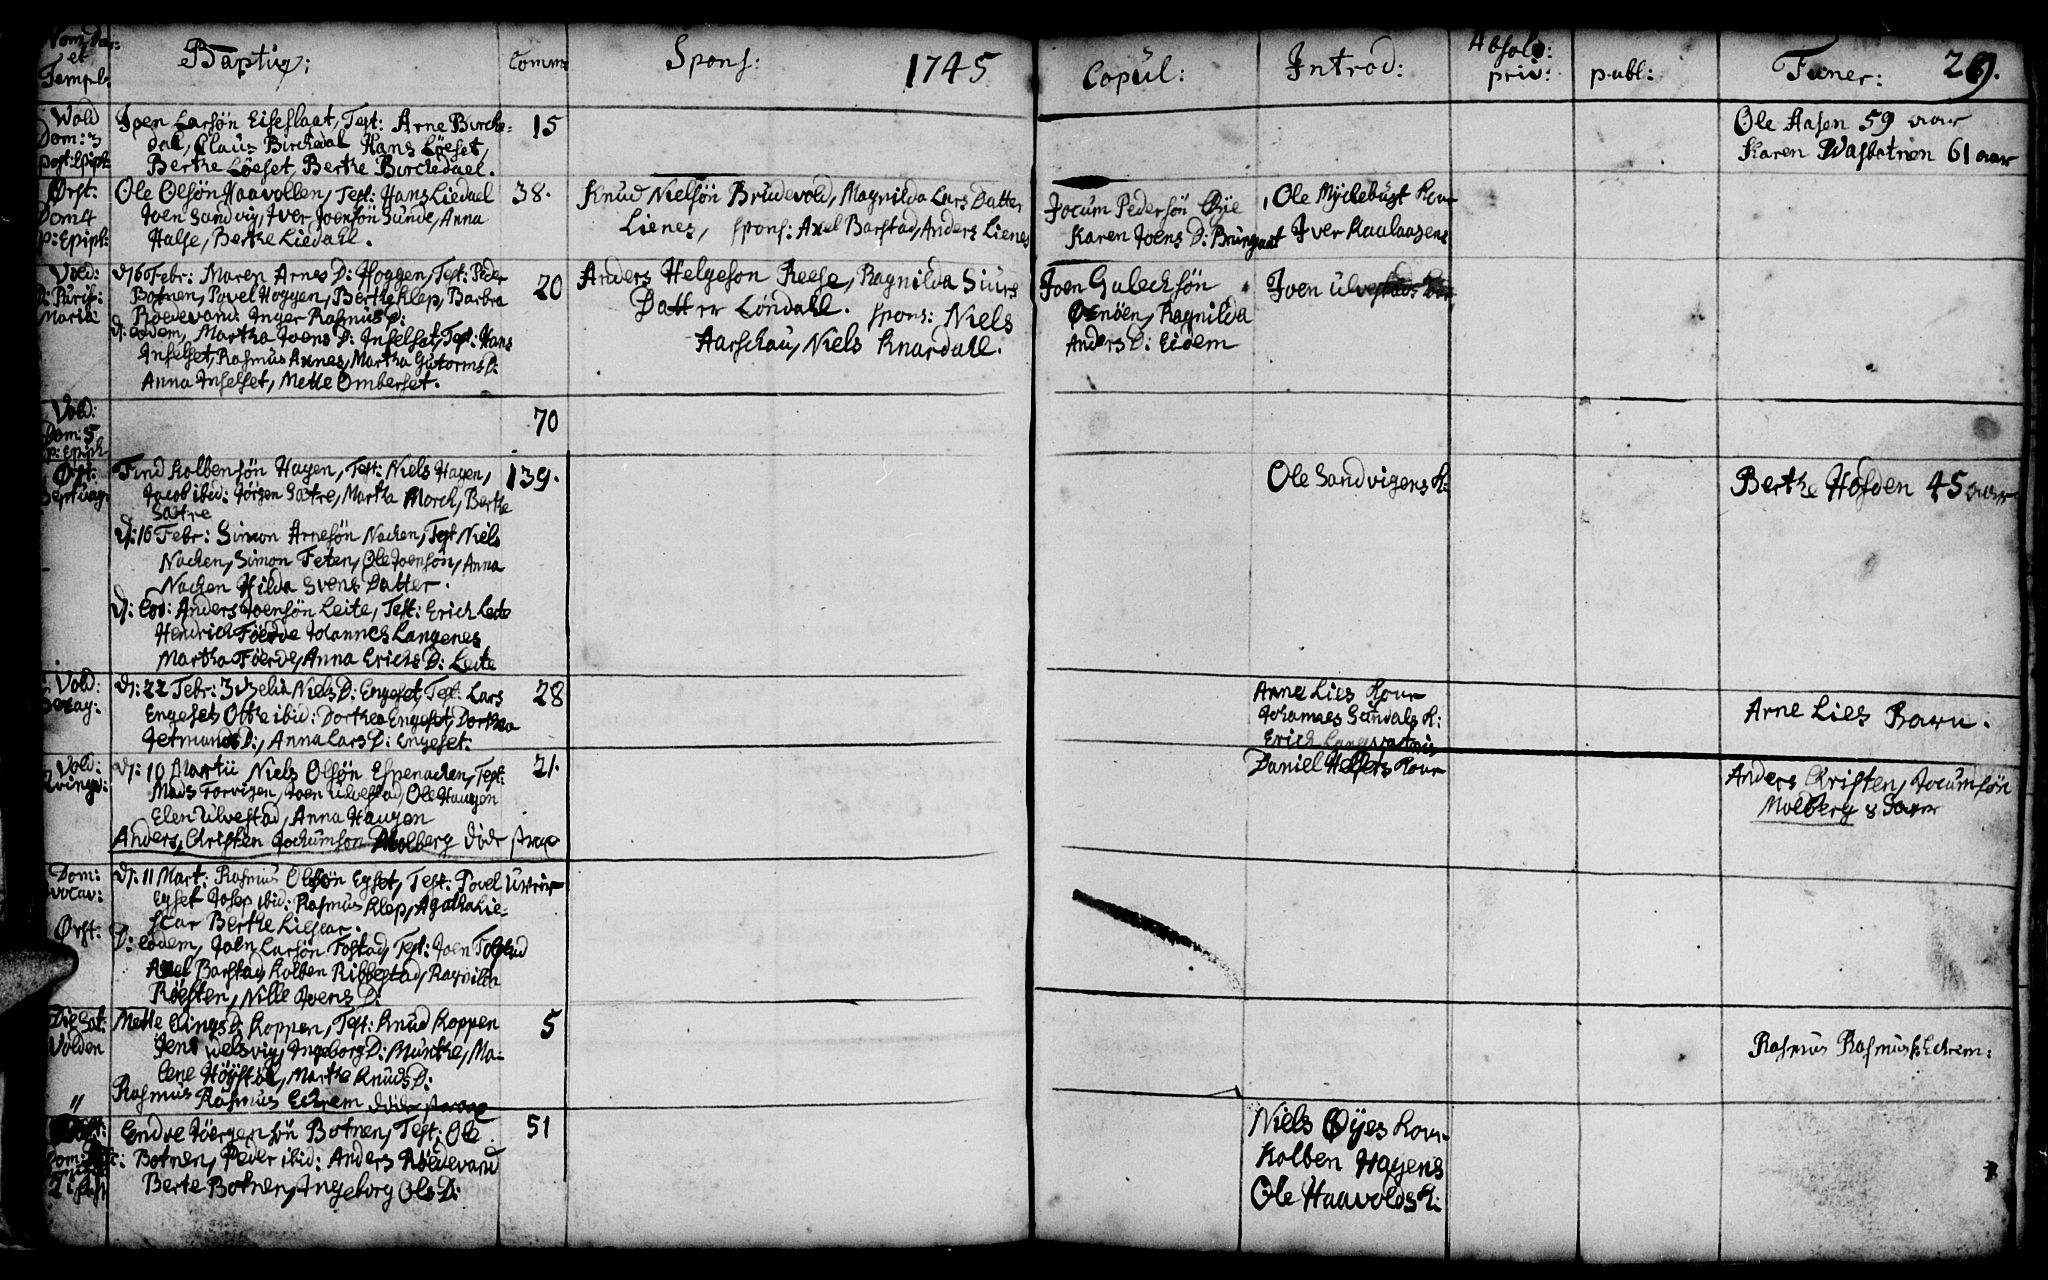 Nom: Dier:
et
Templ:
Baptiz:
Comm:
Spons:
1745
Copul:
Introd:
Absol:
priv:
publ:
Funer:
29.
Wold
Dom: 3
post: Epiph:
Joen Larsön Eiseslaat, Test: Arne Birche-
dal, Claus Birchedal Hans Löeset,
Berthe Löeset, Berthe Birchedael.
15
Ole Aasen 59 aar
Karen Wasbotnen 61 aar
Ørst:
Dom 4
p: Epiph:
Ole Olsön Haavollen, Test: Hans Liedael
Joen Sandvig, Iver Joensön Sunde, Anna
Halse, Berthe Liedahl.
38.
Knud Nielsön Brudevold, Magnilda Lars Datter
Lienes, spons: Axel Barstad, Anders Lienes
Jocum Pedersön Øye
Karen Joens D: Brungaat
Ole Myclebust Kour
Iver Kaalaasens
Vold:
D: Purif:
Mariæ
D: 6 Febr: Maren Arnes D: Hoggen, Test: Peder
Botnen, Povel Hoggen, Berthe Klep, Barbra
Roeevand: Inger Rasmus D:
d: eodem, Martha Joens D: Inselset, Test: Hans
Inselset, Rasmus Axnes, Martha Gutorms D:
Anna Inselset, Mette Omberset.
20
Anders Helgeson Reese, Ragnilda Siurs
Datter Löndahl. spons: Niels
Aarschau, Niels Knardahl.
Joen Gulechsön
Øenöen, Ragnilda
Anders D: Eidem
Joen Ulvestads Kor
Vold:
Dom: 5
p: Epiph
70
Ørst:
Septuag:
Find Kolbensön Hagen, Test: Niels Hagen,
Jacob ibid: Jörgen Sætre, Martha Morch, Berthe
Sætre
D: 16 Febr: Simon Arnesön Nachen, Test Niels
Nachen, Simon Feten, Ole Joensön, Anna
Nachen Hilda Svens Datter.
D: Eod: Anders Joensön Leite, Test: Erich Leite
Hendrich Föerde Johannes Langenes
Martha Föerde, Anna Erichs D: Leite
139.
Ole Sandvigens K:
Berthe Hofden 45 aar
Vold:
Sexag:
D: 22 Febr: Zidzelia Niels D: Engeset, Test: Lars
Engeset Otte ibid: Dorthea Engeset, Dorthea
Jetmunds D:, Anna Lars D: Engeset:
28
Arne Lies Kour
Johannes Sundals K:
Erich Langvatnis
Arne Lies Barn.
Vold:
Qvinqv:
D: 10 Martii Niels Olsön Espenachen, Test:
Mads Torvigen, Joen Ulvestad, Ole Haugen
Elen Ulvestad, Anna Haugen
Anders, Christen Jochumson Molberg döde strax
21.
Daniel Helsets Kour
Anders Christen, Jocumsön
Molberg 8 Dager
Dom:
Invocav:
Ørst:
D: 11 Mart: Rasmus Olsön Egset, Test: Povel
Egset Josep ibid: Rasmus Klep, Agatha Lie-
scar Berthe Liescar.
D: eodem, Joen Larsön Fostad, Test: Joen Folstad
Axel Barstad, Kolben Ribbestad, Ragnilda
Röesten, Nille Joens D:
Die Sat:
Volden
Mette Elings D: Koppen, Test: Knud Koppen
Jens Welsvig, Ingeborg D: Munthe, Ma-
lene Höystöl, Marthe Knuds D:
Rasmus Rasmus Echrem döde strax
5
Rasmus Rasmuss: Echrem:
Endre Jöergensön Botnen, Test: Ole
Botnen, Peder ibid: Anders Röedevand
Berte Botnen, Ingeborg Ols D:
51
Niels Øyes Kour
Kolben Hagens
Ole Haavolds K: